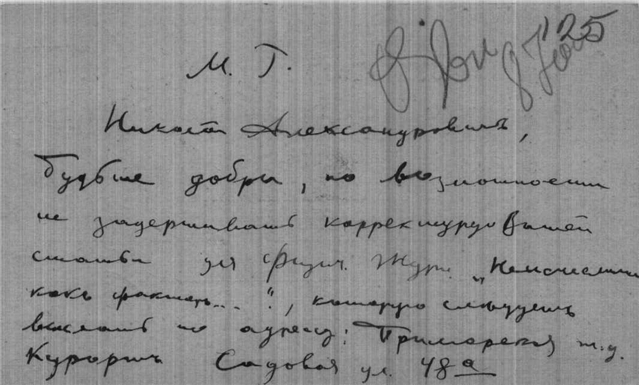 '25
М. Г.
Александровичъ,
будьте добры, по возможности
не задерживать корректуру Вашей
статьи для Физич. Журн. „
какъ факторъ...", которую слѣдуетъ
выслать по адресу: Приморская ж. д.
Курортъ Садовая ул. 48а